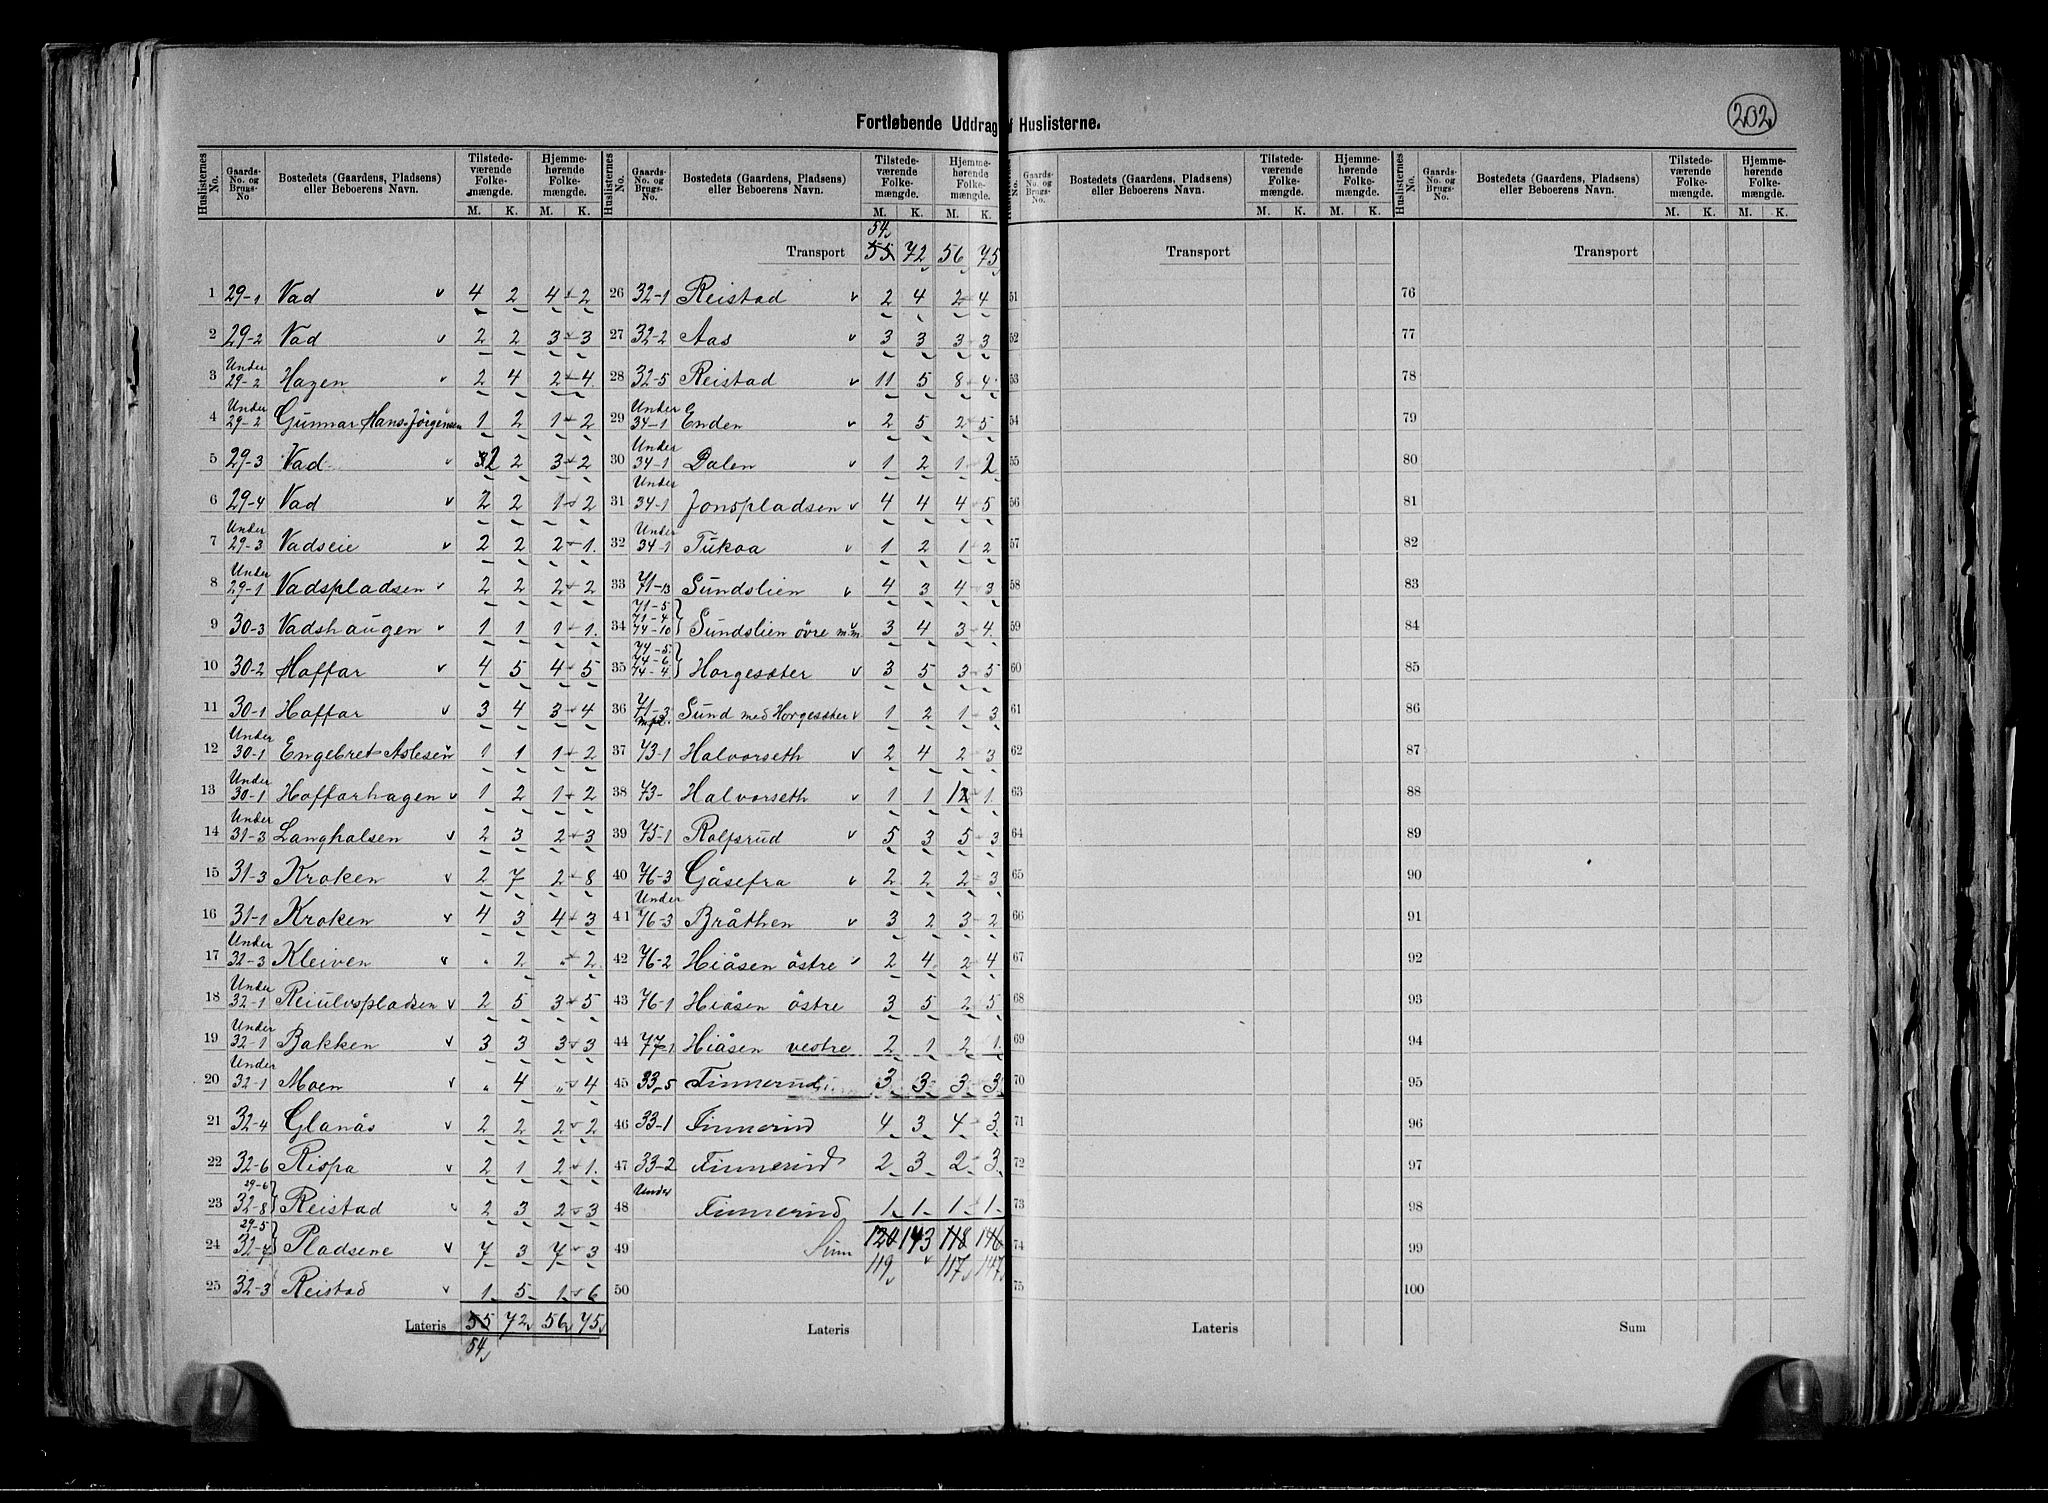 202
Fortløbende Uddrag f Huslisterne.
Huslisternes No. | Gaards-No. og Brugs-No | Bostedets (Gaardens, Pladsens) eller Beboerens Navn. | Tilstedeværende Folkemængde. M. K. | Hjemmehørende Folkemængde. M. K.
1 29-1 Vad v 4 2 4 2
2 29-2 Vad v 2 2 3 3
3 Under 29-2 Hagen v 2 4 2 4
4 Under 29-2 Gunnar Hans. Jörgensen 1 2 1 2
5 29-3 Vad v 2 2 3 2
6 29-4 Vad v 2 2 1 2
7 Under 29-3 Vadseie v 2 2 2 1
8 Under 29-1 Vadspladsen v 2 2 2 2
9 30-3 Vadshaugen v 1 1 1 1
10 30-2 Haffar v 4 5 4 5
11 30-1 Haffar v 3 4 3 4
12 Under 30-1 Engebret Aslesen 1 1 1 2
13 Under 30-1 Haffarhagen v 1 2 1 2
14 Under 31-3 Langhalsen v 2 3 2 3
15 31-3 Kroken v 2 7 2 8
16 31-1 Kroken v 4 3 4 3
17 Under 32-3 Kleiven v " 2 " 2
18 Under 32-1 Reiulvspladsen v 2 5 3 5
19 Under 32-1 Bakken v 3 3 3 3
20 Under 32-1 Moen v " 4 " 4
21 32-4 Glanås v 2 2 2 2
22 32-6 Rispa v 2 1 2 1
23 29-6 32-8 } Reistad v 2 3 2 3
24 29-5 32-7 } Pladsene v 7 3 7 3
25 32-3 Reistad v 1 5 1 6
Lateris 55 72 56 75
54
Huslisternes No. | Gaards-No. og Brugs-No. | Bostedets (Gaardens, Pladsens) eller Beboerens Navn. | Tilstedeværende Folkemængde. M. K. | Hjemmehørende Folkemængde. M. K.
54
Transport 55 72 56 75
26 32-1 Reistad v 2 4 2 4
27 32-2 Aas v 3 3 3 3
28 32-5 Reistad v 11 5 8 4
29 Under 34-1 Enden v 2 5 2 5
30 Under 34-1 Dalen v 1 2 1 2
31 Under 34-1 Jonspladsen v 4 4 4 5
32 Under 34-1 Tukoa v 1 2 1 2
33 71-13 Sundslien v 4 3 4 3
34 71-5 71-4 74-10 } Sundslien övre m.m. 3 4 3 4
35 74-5 74-6 74-4 } Horgesæter v 3 5 3 5
36 71-3 Sund med Horgesæter v 1 2 1 3
37 73-1 Halvorseth v 2 4 2 3
38 73- Halvorseth v 1 1 1 1
39 75-1 Rolfsrud v 5 3 5 3
40 76-3 Gåsefra v 2 2 2 3
41 Under 76-3 Bråthen v 3 2 3 2
42 76-2 Hiåsen östre v 2 4 2 4
43 76-1 Hiåsen östre 3 5 2 5
44 77-1 Hiåsen vestre 2 1 2 1
45 33-5 Finnerud 3 3 3 3
46 33-1 Finnerud 4 3 4 3
47 33-2 Finnerud 2 3 2 3
48 Under Finnerud 1 1 1 1
49 Sum 120 143 118 146
119 v 117 147
50
Lateris
Huslisternes No. | Gaards-No. og Brugs-No. | Bostedets (Gaardens, Pladsens) eller Beboerens Navn. | Tilstedeværende Folkemængde. M. K. | Hjemmehørende Folkemængde. M. K.
Transport
51
52
53
54
55
56
57
58
59
60
61
62
63
64
65
66
67
68
69
70
71
72
73
74
75
Lateris
Huslisternes No. | Gaards-No. og Brugs-No. | Bostedets (Gaardens, Pladsens) eller Beboerens Navn. | Tilstedeværende Folkemængde. M. K. | Hjemmehørende Folkemængde. M. K.
Transport
76
77
78
79
80
81
82
83
84
85
86
87
88
89
90
91
92
93
94
95
96
97
98
99
100
Sum